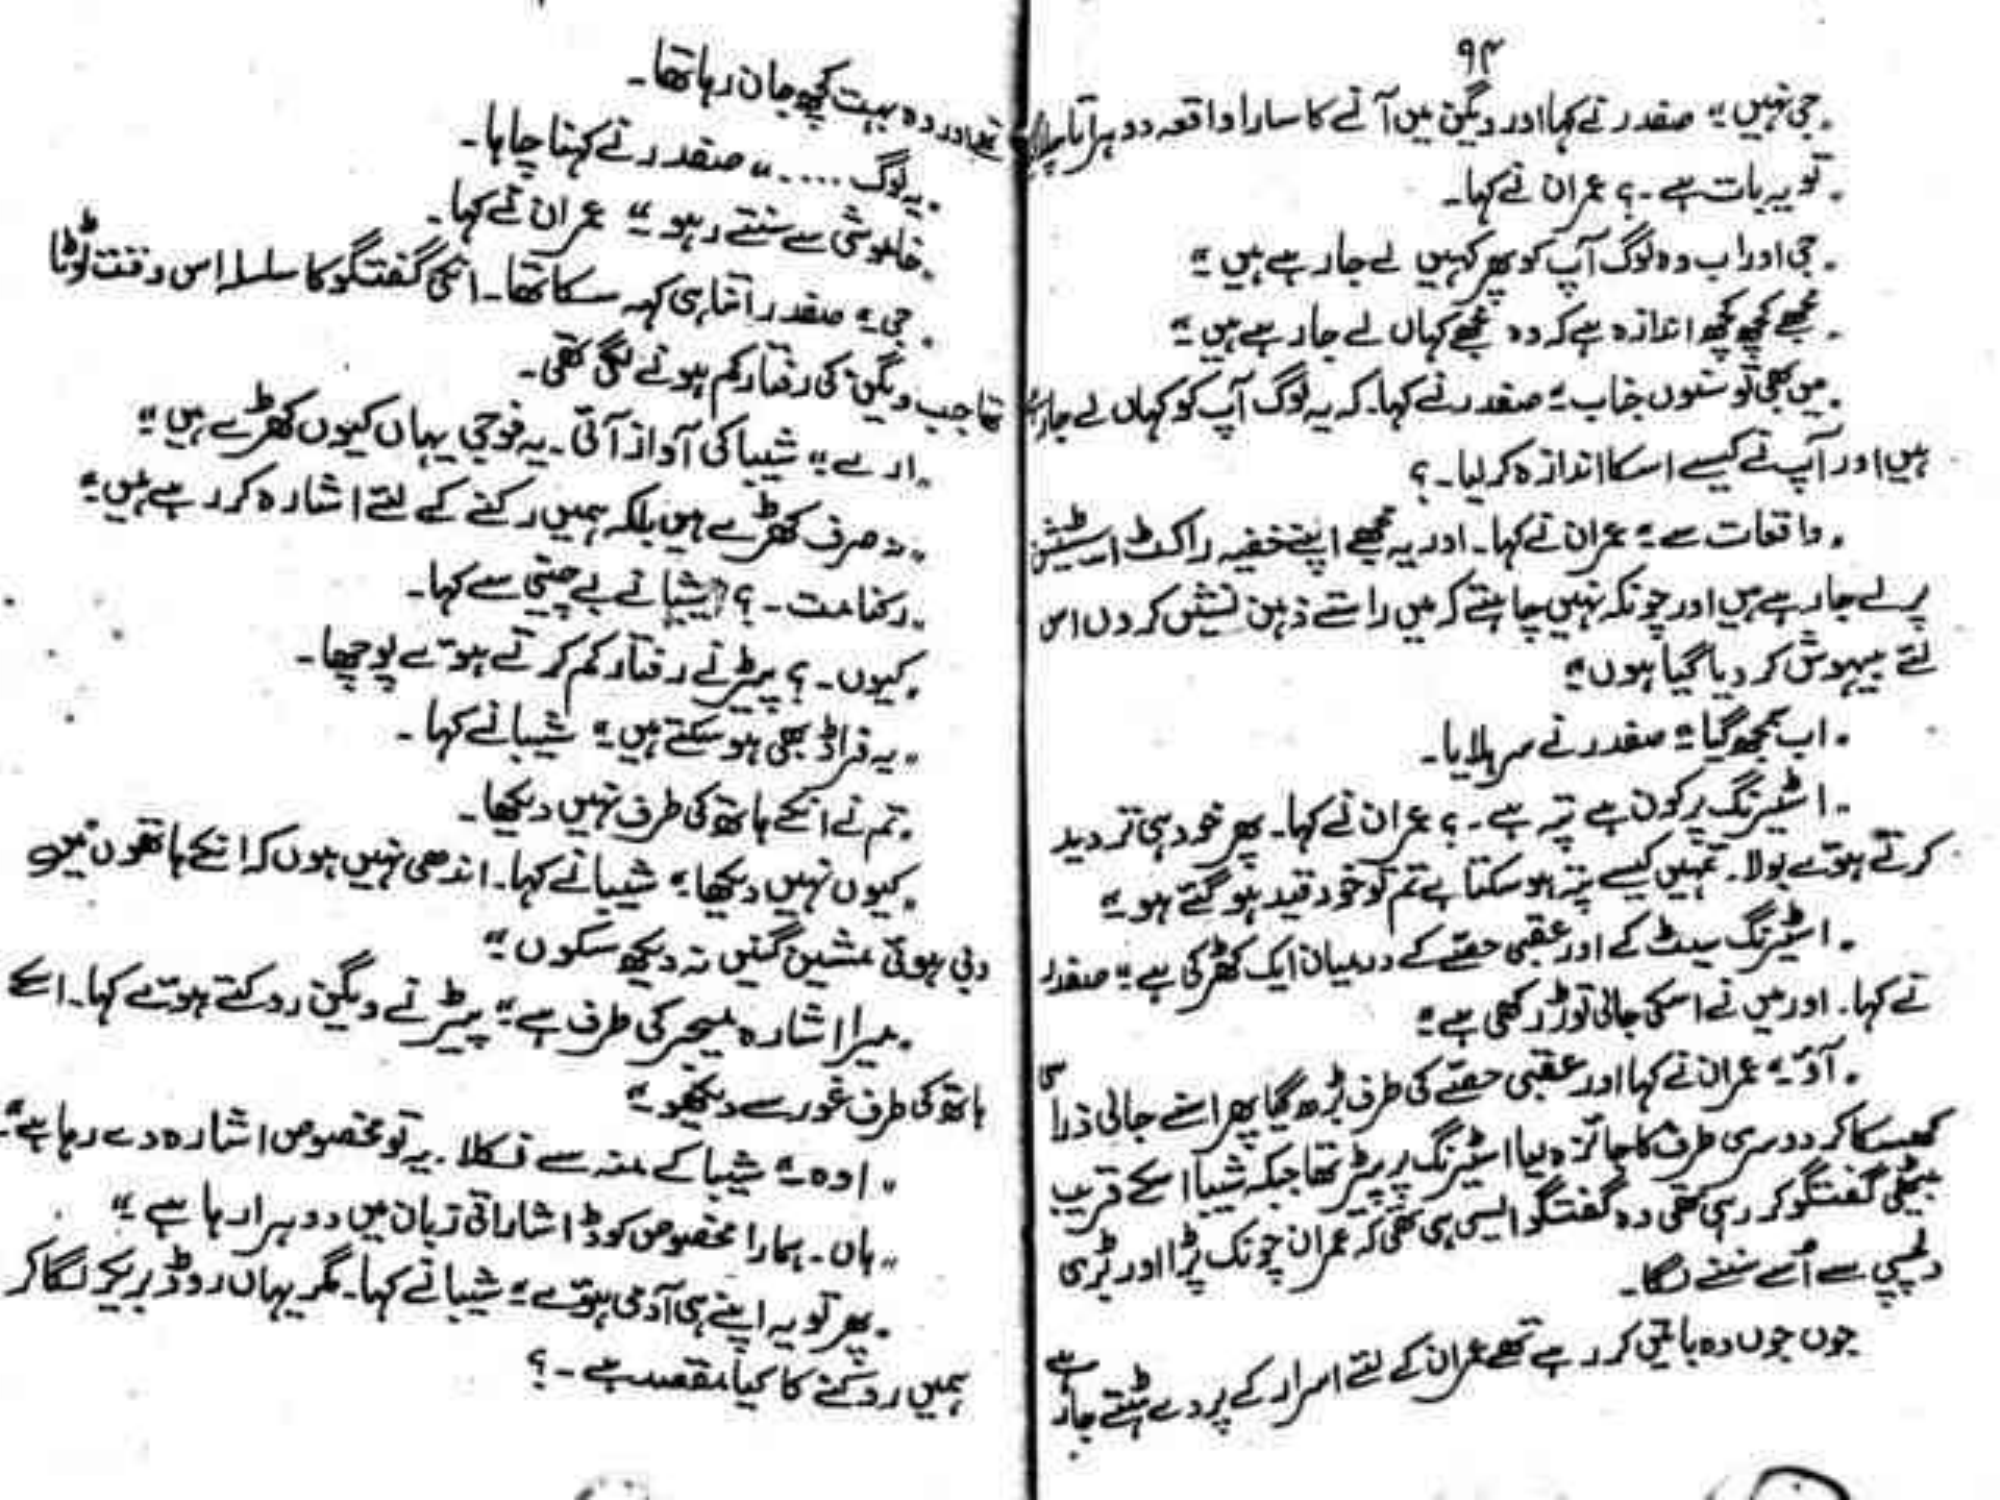 ۹۴
"جی نہیں" صفدر نے کہا اور ویگن میں آنے کا سارا واقعہ دوہراتا چلا گیا
"تو یہ بات ہے۔؟ عمران نے کہا۔
"جی اور اب وہ لوگ آپ کو پھر کہیں لے جا رہے ہیں"
"مجھے کچھ کچھ اندازہ ہے کہ وہ مجھے کہاں لے جا رہے ہیں"
"میں بھی تو سنوں جناب" صفدر نے کہا۔ کہ یہ لوگ آپ کو کہاں لے جا رہے
ہیں اور آپ نے کیسے اسکا اندازہ کر لیا۔؟
"واقعات سے" عمران نے کہا۔ اور یہ مجھے اپنے خفیہ راکٹ اسٹیشن
پر لے جا رہے ہیں اور چونکہ نہیں چاہتے کہ میں راستے ذہن نشین کر دوں اس
لئے بیہوش کر دیا گیا ہوں"
"اب سمجھ گیا" صفدر نے سر ہلایا۔
"اسٹیرنگ پر کون ہے پتہ ہے۔؟ عمران نے کہا۔ پھر خود ہی تردید
کرتے ہوئے بولا۔ تمہیں کیسے پتہ ہو سکتا ہے تم تو خود قید ہو گئے ہو"
"اسٹیرنگ سیٹ کے اور عقبی حصے کے درمیان ایک کھڑکی ہے" صفدر
نے کہا۔ اور میں نے اسکی جالی توڑ رکھی ہے"
"آؤ" عمران نے کہا اور عقبی حصے کی طرف بڑھ گیا پھر اسنے جالی ذرا سی
کھسکا کر دوسری طرف کا جائزہ لیا اسٹیرنگ پر پیٹر تھا جبکہ شیبا اسکے قریب
بیٹھی گفتگو کر رہی تھی وہ گفتگو ایسی ہی تھی کہ عمران چونک پڑا اور بڑی
دلچسپی سے اُسے سننے لگا۔
جوں جوں وہ باتیں کر رہے تھے عمران کے لئے اسرار کے پردے ہٹتے جا رہے
تھے اور وہ بہت کچھ جان رہا تھا۔
"یہ لوگ ....." صفدر نے کہنا چاہا۔
"خاموشی سے سنتے رہو" عمران نے کہا۔
"جی" صفدر اتنا ہی کہہ سکا تھا۔ انکی گفتگو کا سلسلہ اس وقت ٹوٹا
تھا جب ویگن کی رفتار کم ہونے لگی تھی۔
"ارے" شیبا کی آواز آئی۔ یہ فوجی یہاں کیوں کھڑے ہیں"
"نہ صرف کھڑے ہیں بلکہ ہمیں رکنے کے لئے اشارہ کر رہے ہیں"
"رکنا مت۔؟ شیبا نے بے چینی سے کہا۔
"کیوں۔؟ پیٹر نے رفتار کم کرتے ہوئے پوچھا۔
"یہ فراڈ بھی ہو سکتے ہیں" شیبا نے کہا۔
"تم نے انکے ہاتھ کی طرف نہیں دیکھا۔
"کیوں نہیں دیکھا" شیبا نے کہا۔ اندھی نہیں ہوں کہ انکے ہاتھوں میں
دبی ہوئی مشین گنیں نہ دیکھ سکوں"
"میرا اشارہ میجر کی طرف ہے" پیٹر نے ویگن روکتے ہوئے کہا۔ اسکے
ہاتھ کی طرف غور سے دیکھو"
"اوہ" شیبا کے منہ سے نکلا۔ یہ تو مخصوص اشارہ دے رہا ہے"
"ہاں۔ ہمارا مخصوص کوڈ اشاراتی زبان میں دوہرا رہا ہے"
"پھر تو یہ اپنے ہی آدمی ہوئے" شیبا نے کہا۔ مگر یہاں روڈ بریکر لگا کر
ہمیں روکنے کا کیا مقصد ہے۔؟